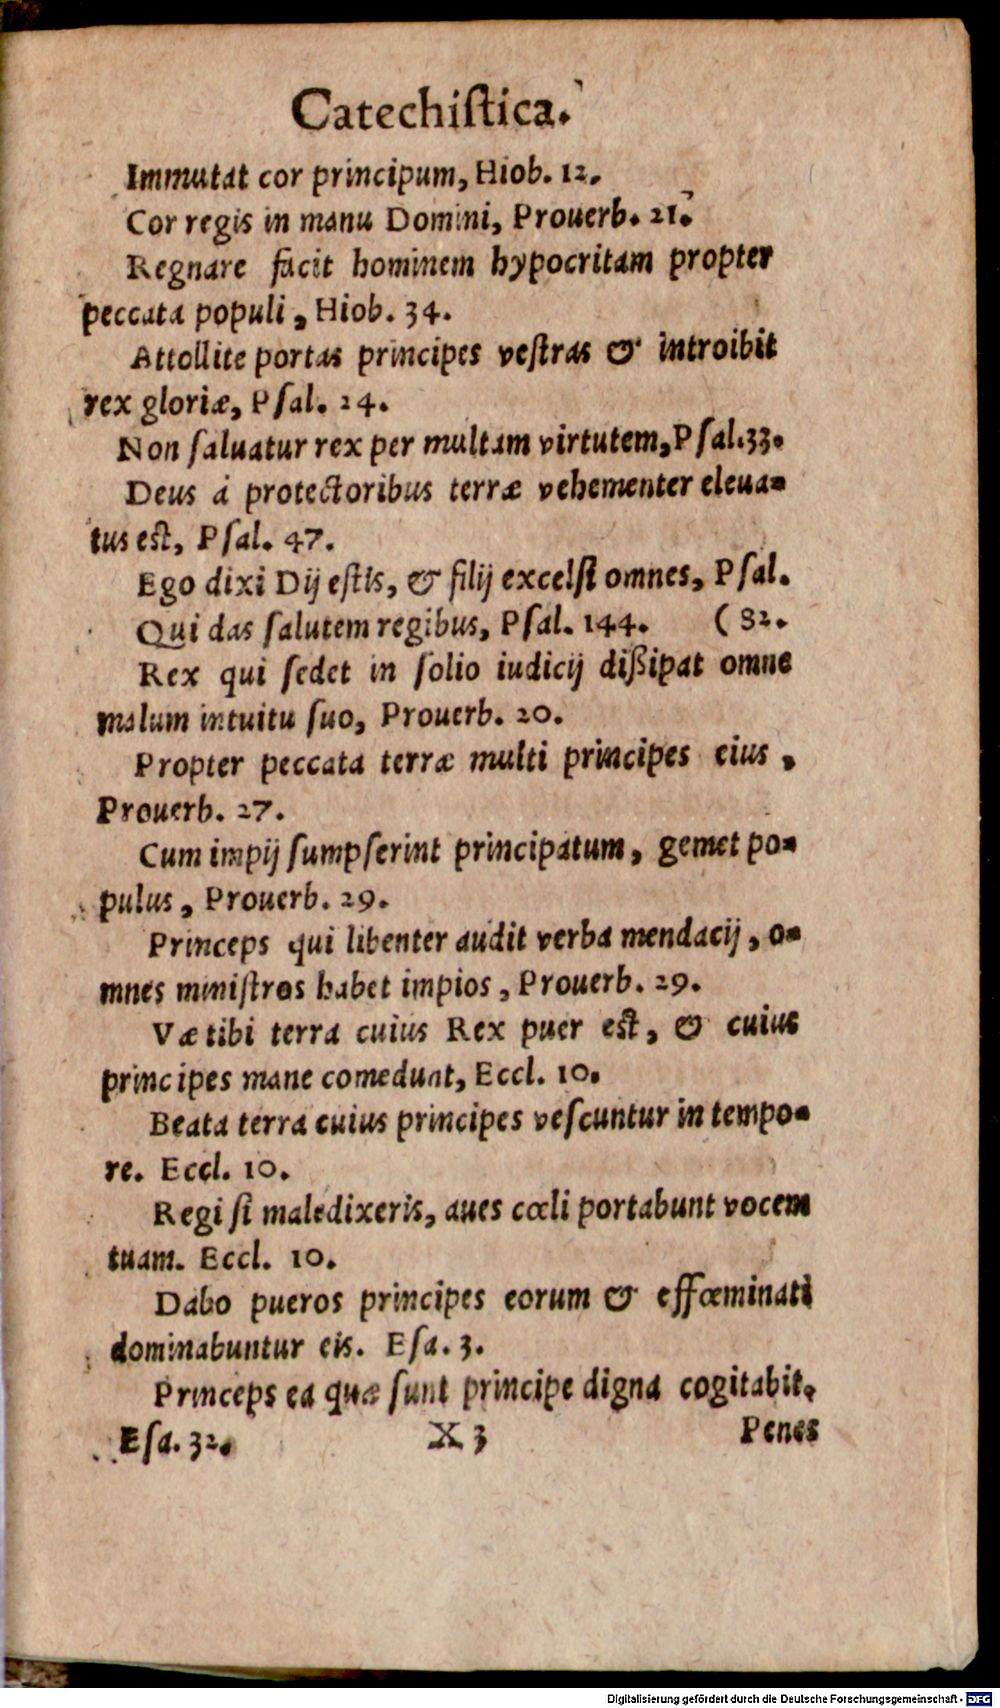 Catechiſtica.
Immutat cor principum, Hiob. 12.
Cor regis in manu Domini, Prouerb. 21.
Regnare facit hominem hypocritam propter
peccata populi, Hiob. 34.
Attollite portas principes veſtras & introibit
rex gloriæ, Pſal. 24.
Non ſaluatur rex per multam virtutem, Pſal. 33.
Deus à protectoribus terræ vehementer eleua-
tus est, Pſal. 47.
Ego dixi Dij eſtis, & filij excelſi omnes, Pſal.
Qui das ſalutem regibus, Pſal. 144. (82.
Rex qui ſedet in ſolio iudicij diſſipat omne
malum intuitu ſuo, Prouerb. 20.
Propter peccata terræ multi principes eius,
Prouerb. 27.
Cum impij ſumpſerint principatum, gemet po-
pulus, Prouerb. 29.
Princeps qui libenter audit verba mendacij, o-
mnes miniſtros habet impios, Prouerb. 29.
Væ tibi terra cuius Rex puer est, & cuius
principes mane comedunt, Eccl. 10.
Beata terra cuius principes veſcuntur in tempo-
re. Eccl. 10.
Regi ſi maledixeris, aues cœli portabunt vocem
tuam. Eccl. 10.
Dabo pueros principes eorum & effœminati
dominabuntur eis. Eſa. 3.
Princeps ea quæ ſunt principe digna cogitabit,
Eſa. 32. X 3 Penes
Digitalisierung gefördert durch die Deutsche Forschungsgemeinschaft - DFG